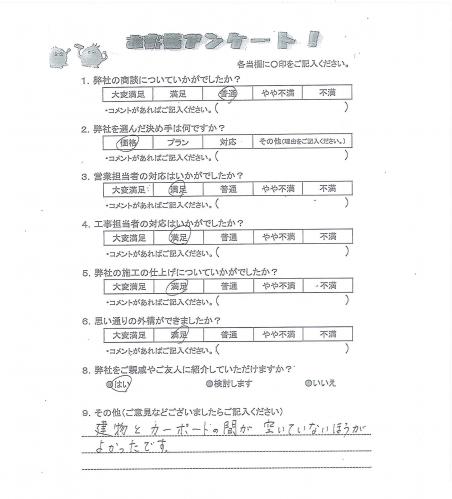 お客様アンケート!
各当欄に○印をご記入ください。
1. 弊社の商談についていかがでしたか?
大変満足 満足 普通 やや不満 不満
・コメントがあればご記入ください。( )
2. 弊社を選んだ決め手は何ですか?
価格 プラン 対応 その他(理由をご記入ください。)
・コメントがあればご記入ください。( )
3. 営業担当者の対応はいかがでしたか?
大変満足 満足 普通 やや不満 不満
・コメントがあればご記入ください。( )
4. 工事担当者の対応はいかがでしたか?
大変満足 満足 普通 やや不満 不満
・コメントがあればご記入ください。( )
5. 弊社の施工の仕上げについていかがでしたか?
大変満足 満足 普通 やや不満 不満
・コメントがあればご記入ください。( )
6. 思い通りの外構ができましたか?
大変満足 満足 普通 やや不満 不満
・コメントがあればご記入ください。( )
8. 弊社をご親戚やご友人に紹介していただけますか?
◎はい ◎検討します ◎いいえ
9. その他(ご意見などございましたらご記入ください)
建物とカーポートの間が空いていないほうが
よかったです。